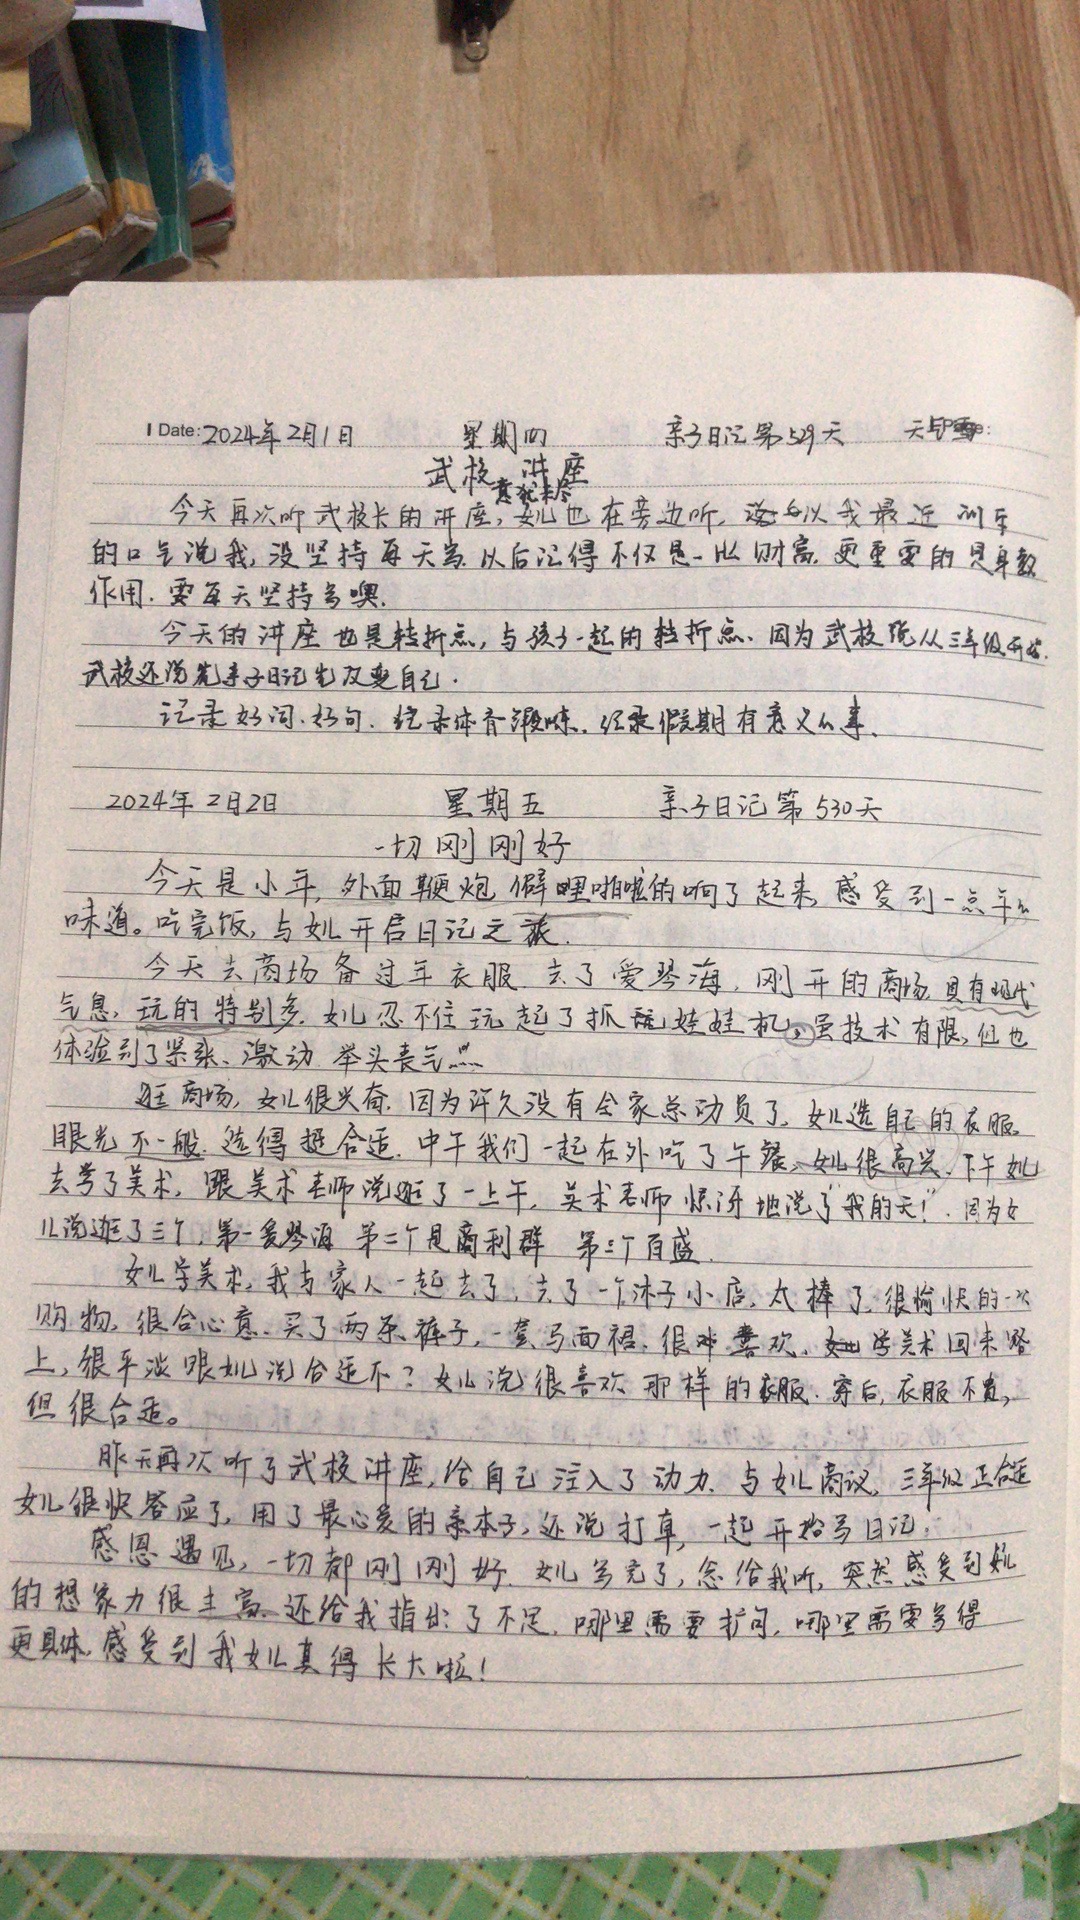 Date: 2024年2月1日 星期四 亲子日记第529天 天气
武校 讲座
意犹未尽
今天再次听武校长的讲座,女儿也在旁边听,以我最近
的口气说我,没坚持每天写.以后记得不仅是一比财富.更重要的是身教
作用.要每天坚持写噢.
今天的讲座也是转折点,与孩子一起的转折点.因为武校说从三年级开始.
武校还说先亲子日记先改变自己.
记录好词.好句.记录体育锻炼.记录假期有意义的事.
2024年2月2日 星期五 亲子日记第530天
一切刚刚好
今天是小年,外面鞭炮僻哩啪啦的响了起来,感受到一点年的
味道。吃完饭,与女儿开启日记之旅.
今天去商场备过年衣服.去了爱琴海,刚开的商场.具有现代
气息,玩的特别多.女儿忍不住玩起了抓玩娃娃机,虽技术有限,但也
体验到了紧张、激动 举头丧气……
逛商场,女儿很兴奋.因为许久没有全家总动员了.女儿选自己的衣服
眼光不一般.选得挺合适.中午我们一起在外吃了午餐,女儿很高兴.下午她
去学了美术,跟美术老师说逛了一上午,美术老师惊讶地说了"我的天!".因为女
儿说逛了三个,第一爱琴海 第二个是商利群 第三个百盛.
女儿学美术,我与家人一起去了,去了一个沐子小店.太棒了.很愉快的一次
购物,很合心意.买了两条裤子,一套马面裙.很喜欢.学美术回来路
上,很平淡跟她说合适不?女儿说很喜欢那样的衣服.穿后,衣服不贵,
但很合适。
昨天再次听了武校讲座,给自己注入了动力.与女儿商议,三年级正合适
女儿很快答应了,用了最心爱的亲本子,还说打卓,一起开始写日记.
感恩遇见,一切都刚刚好.女儿写完了,念给我听,突然感受到她
的想象力很丰富.还给我指出了不足.哪里需要扩句,哪里需要写得
更具体.感受到我女儿真得长大啦!